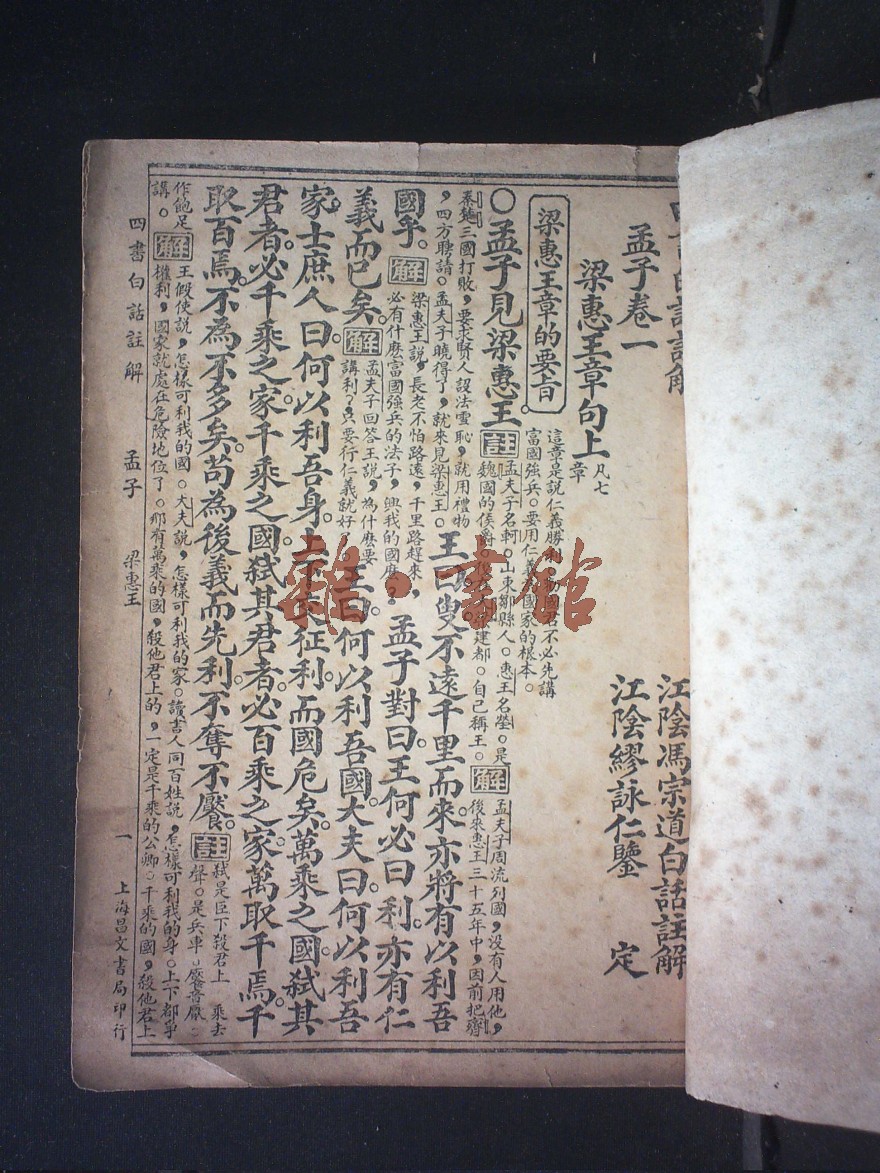 孟子卷一
江陰馮宗道白話註解
江陰繆詠仁鑒 定
梁惠王章句上 凡七章
梁惠王章的要旨
這章是說仁義勝利。國君不必先講
富國強兵。要用仁義國家的根本。
○孟子見梁惠王。
註 孟夫子名軻。山東鄒縣人。惠王名罃。是
魏國的侯爵。建都。自己稱王。
解 孟夫子周流列國，沒有人用他，
後來惠王三十五年中，因前把齊
秦楚三國打敗，要求賢人設法雪恥，就用禮物
，四方聘請。孟夫子曉得了，就來見梁惠王。
王曰。叟不遠千里而來。亦將有以利吾
國乎。
解 梁惠王說，長老不怕路遠，千里路趕來，
必有什麼富國強兵的法子，興我的國度。
孟子對曰。王何必曰利。亦有仁
義而已矣。
解 孟夫子回答王說，為什麼要
講利？只要行仁義就好
王曰。何以利吾國。大夫曰。何以利吾
家。士庶人曰。何以利吾身。上下交征利。而國危矣。萬乘之國。弒其
君者。必千乘之家。千乘之國。弒其君者。必百乘之家。萬取千焉。千
取百焉。不為不多矣。苟為後義而先利。不奪不饜。
註 弒是臣下殺君上 乘去
聲。是兵車。饜音厭。
作飽足
講。
解 王假使說，怎樣可利我的國。大夫說，怎樣可利我的家。讀書人同百姓說，怎樣可利我的身。上下都爭
權利，國家就處在危險地位了。那有萬乘的國，殺他君上的，一定是千乘的公卿。千乘的國，殺他君上
四書白話註解 孟子 梁惠王 一 上海昌文書局印行
雜·書館